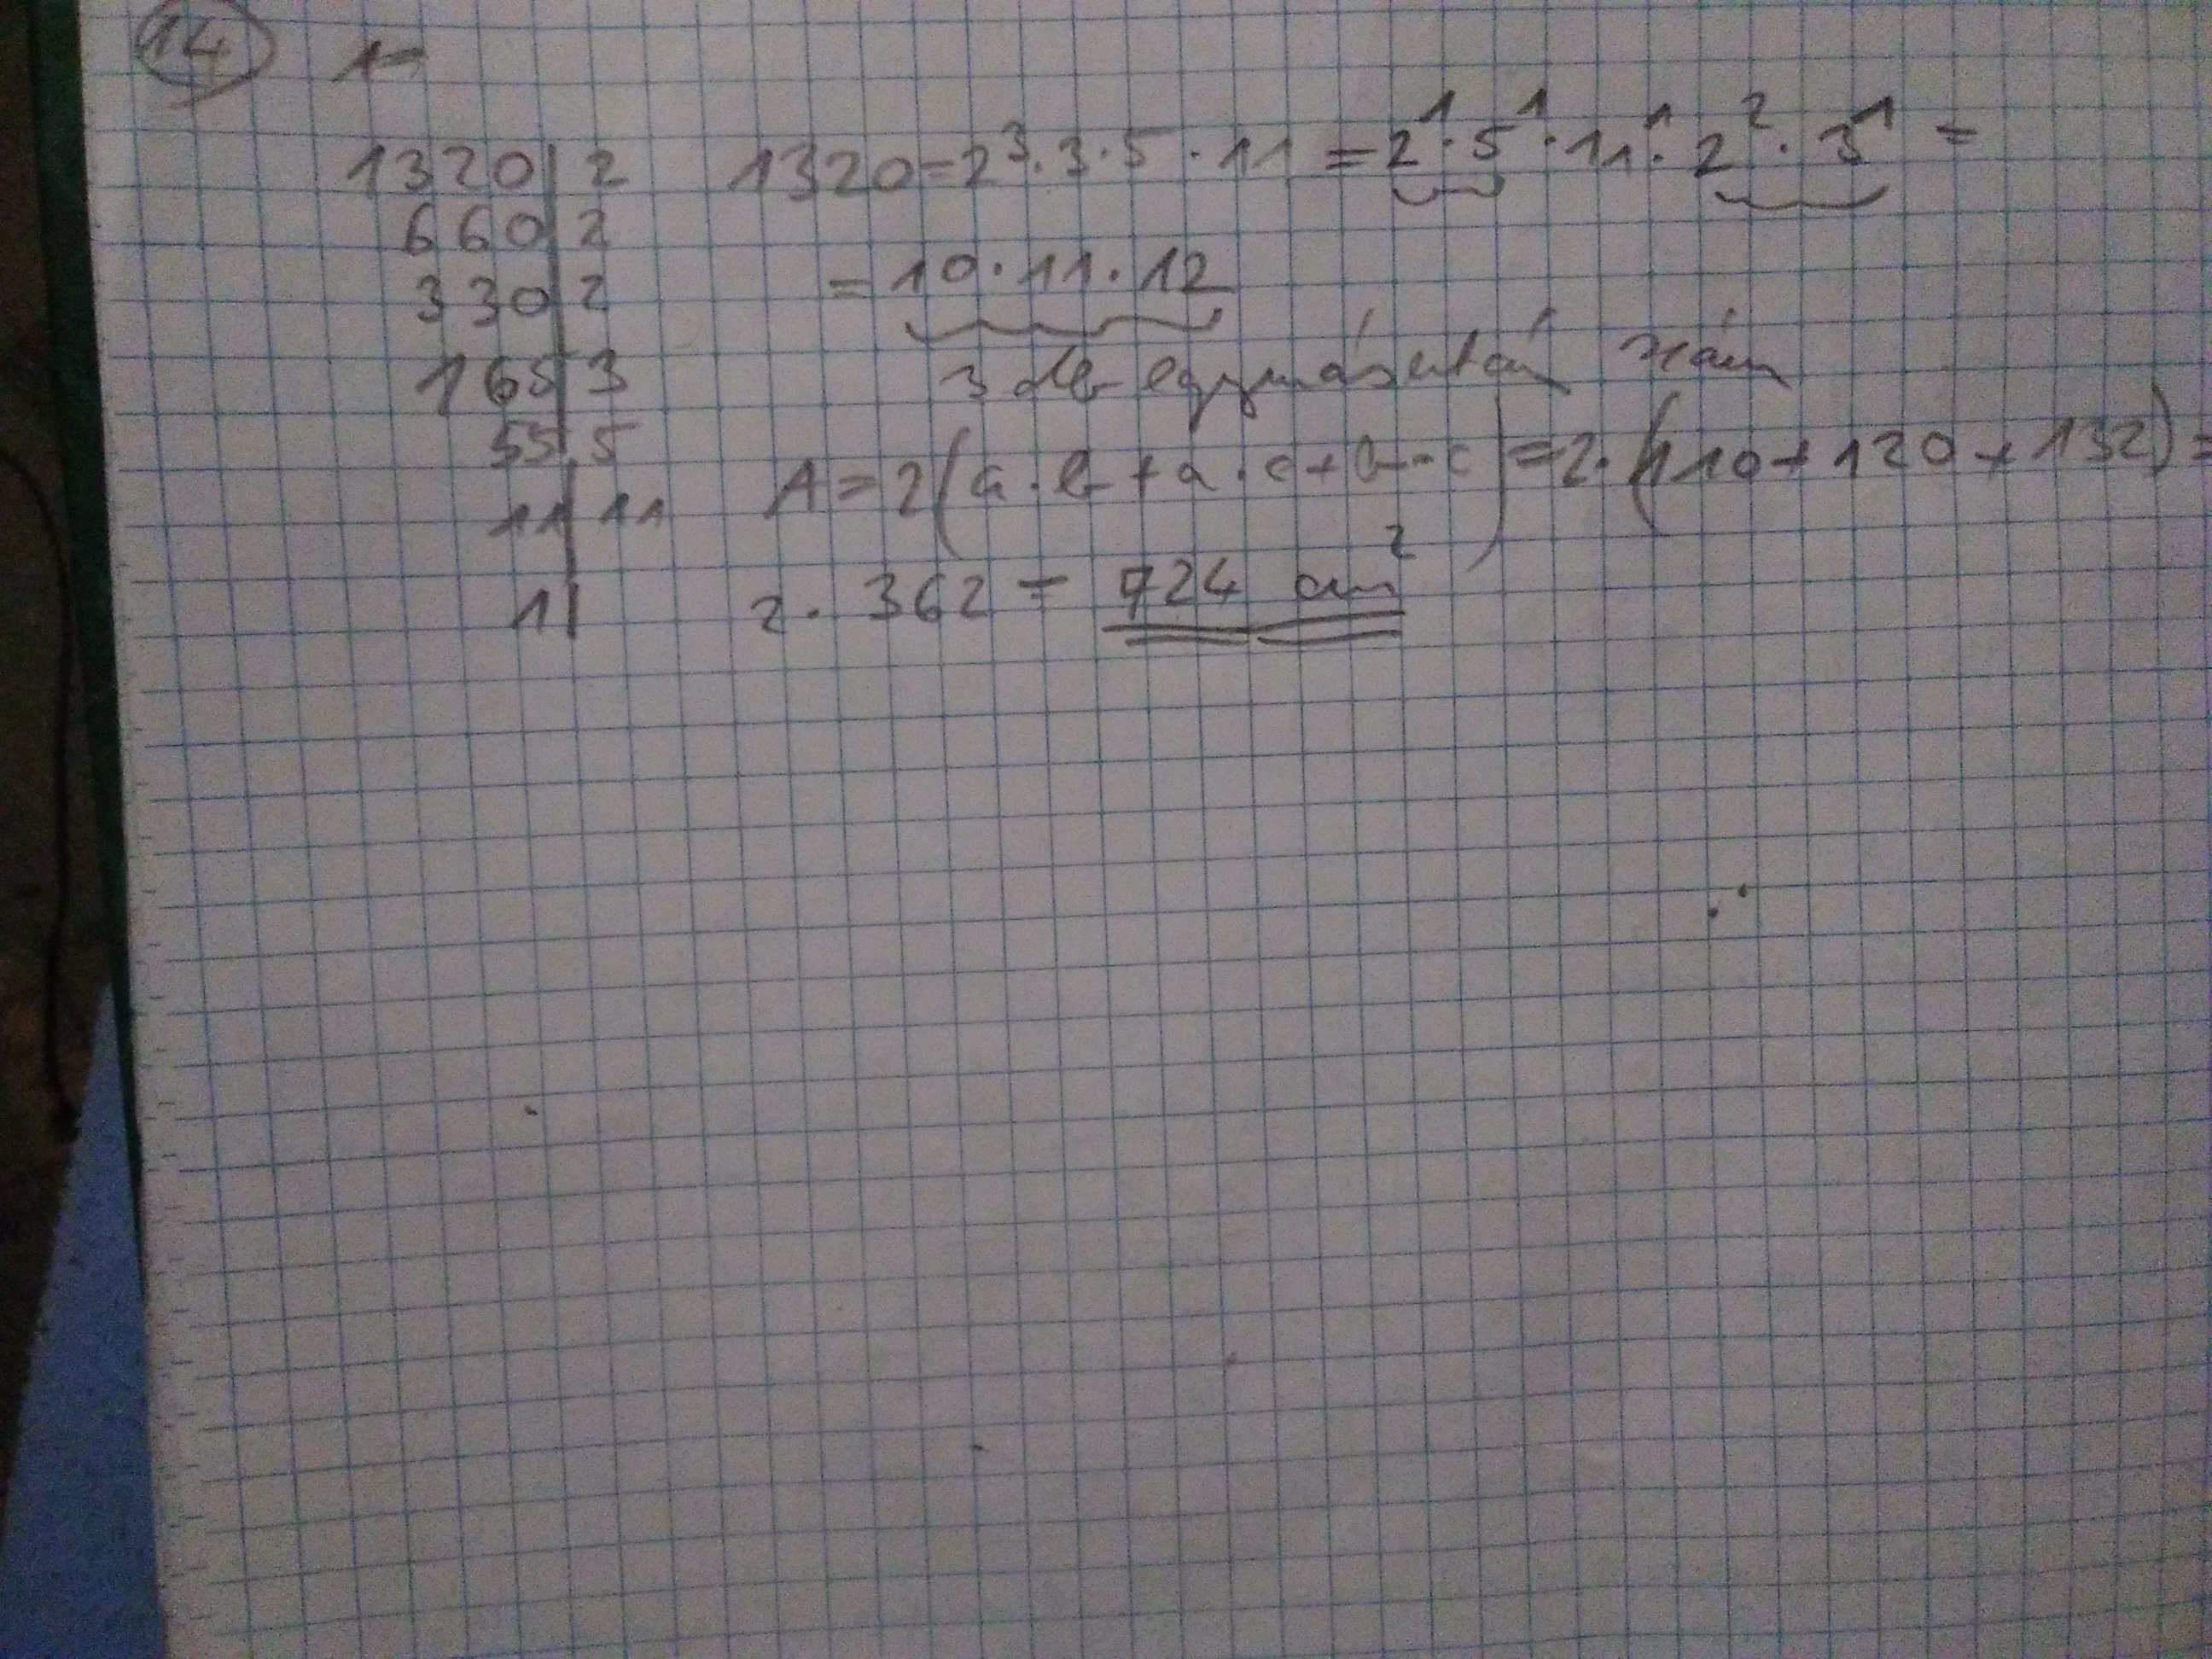 14
1320 | 2
660 | 2
330 | 2
165 | 3
55 | 5
11 | 11
1 |
1320 = 2³ · 3 · 5 · 11 = 2¹ · 5¹ · 11¹ · 2² · 3¹ =
= 10 · 11 · 12
3 db egymásutáni szám
A = 2(a · b + a · c + b · c) = 2 · (110 + 120 + 132) =
2 · 362 = 724 cm²